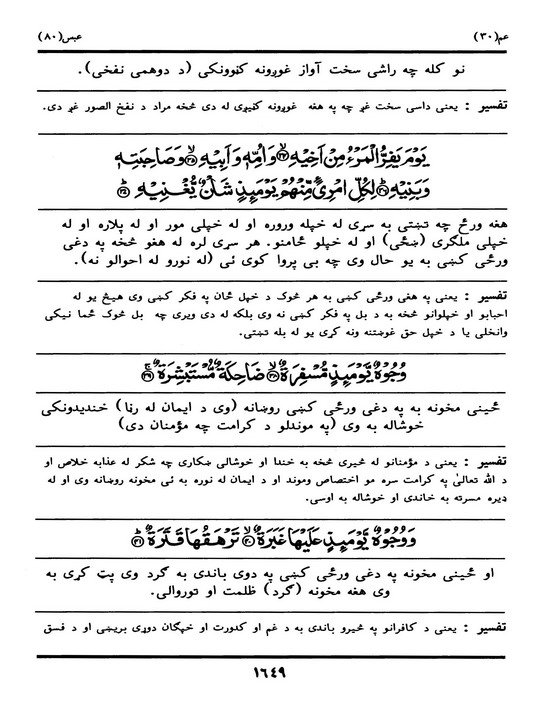 عم(٣٠) عبس(٨٠)
نو کله چه راشي سخت آواز غوږونه کڼوونکي (د دوهمي نفخي).
تفسیر : یعنی داسی سخت غږ چه په هغه غوږونه کڼیږي له دی څخه مراد د نفخ الصور غږ دی.
يَوْمَ يَفِرُّ الْمَرْءُ مِنْ أَخِيْهِ ۙ﴿٣٤﴾ وَأُمِّهٖ وَأَبِيْهِ ۙ﴿٣٥﴾ وَصَاحِبَتِهٖ
وَبَنِيْهِ ۗ﴿٣٦﴾ لِكُلِّ امْرِئٍ مِّنْهُمْ يَوْمَئِذٍ شَاْنٌ يُّغْنِيْهِ ۗ﴿٣٧﴾
هغه ورځ چه تښتي به سړی له خپله وروره او له خپلي مور او له پلاره او له
خپلي ملګري (ښځي) او له خپلو ځامنو. هر سړی لره له هغو څخه په دغي
ورځي کښي به یو حال وی چه بی پروا کوی ئی (له نورو له احوالو نه).
تفسیر : یعنی په هغی ورځي کښي به هر څوک د خپل ځان په فکر کښي وی هیڅ یو له
احبابو او خپلوانو څخه به د بل په فکر کښي نه وی بلکه له دی ویری چه بل څوک ځما نیکي
وانخلي یا د خپل حق غوښتنه ونه کړي یو له بله تښتي.
وُجُوْهٌ يَّوْمَئِذٍ مُّسْفِرَةٌ ۙ﴿٣٨﴾ ضَاحِكَةٌ مُّسْتَبْشِرَةٌ ۚ﴿٣٩﴾
ځینی مخونه به په دغی ورځي کښي روښانه (وی د ایمان له رڼا) خندیدونکي
خوشاله به وی (په موندلو د کرامت چه مؤمنان دی)
تفسیر : یعنی د مؤمنانو له څیری څخه به خندا او خوشالي ښکاري چه شکر له عذابه خلاص او
د الله تعالیٰ په کرامت سره مو اختصاص وموند او د ایمان له نوره به ئی مخونه روښانه وی او له
ډیره مسرته به خاندي او خوشاله به اوسی.
وَوُجُوْهٌ يَّوْمَئِذٍ عَلَيْهَا غَبَرَةٌ ۙ﴿٤٠﴾ تَرْهَقُهَا قَتَرَةٌ ۗ﴿٤١﴾
او ځینی مخونه په دغی ورځي کښي په دوی باندی به ګرد وی پټ کړي به
وی هغه مخونه (ګرد) ظلمت او توروالی.
تفسیر : یعنی د کافرانو په څیرو باندی به د غم او کدورت او خپګان دوړی بریښي او د فسق
١٦٤٩